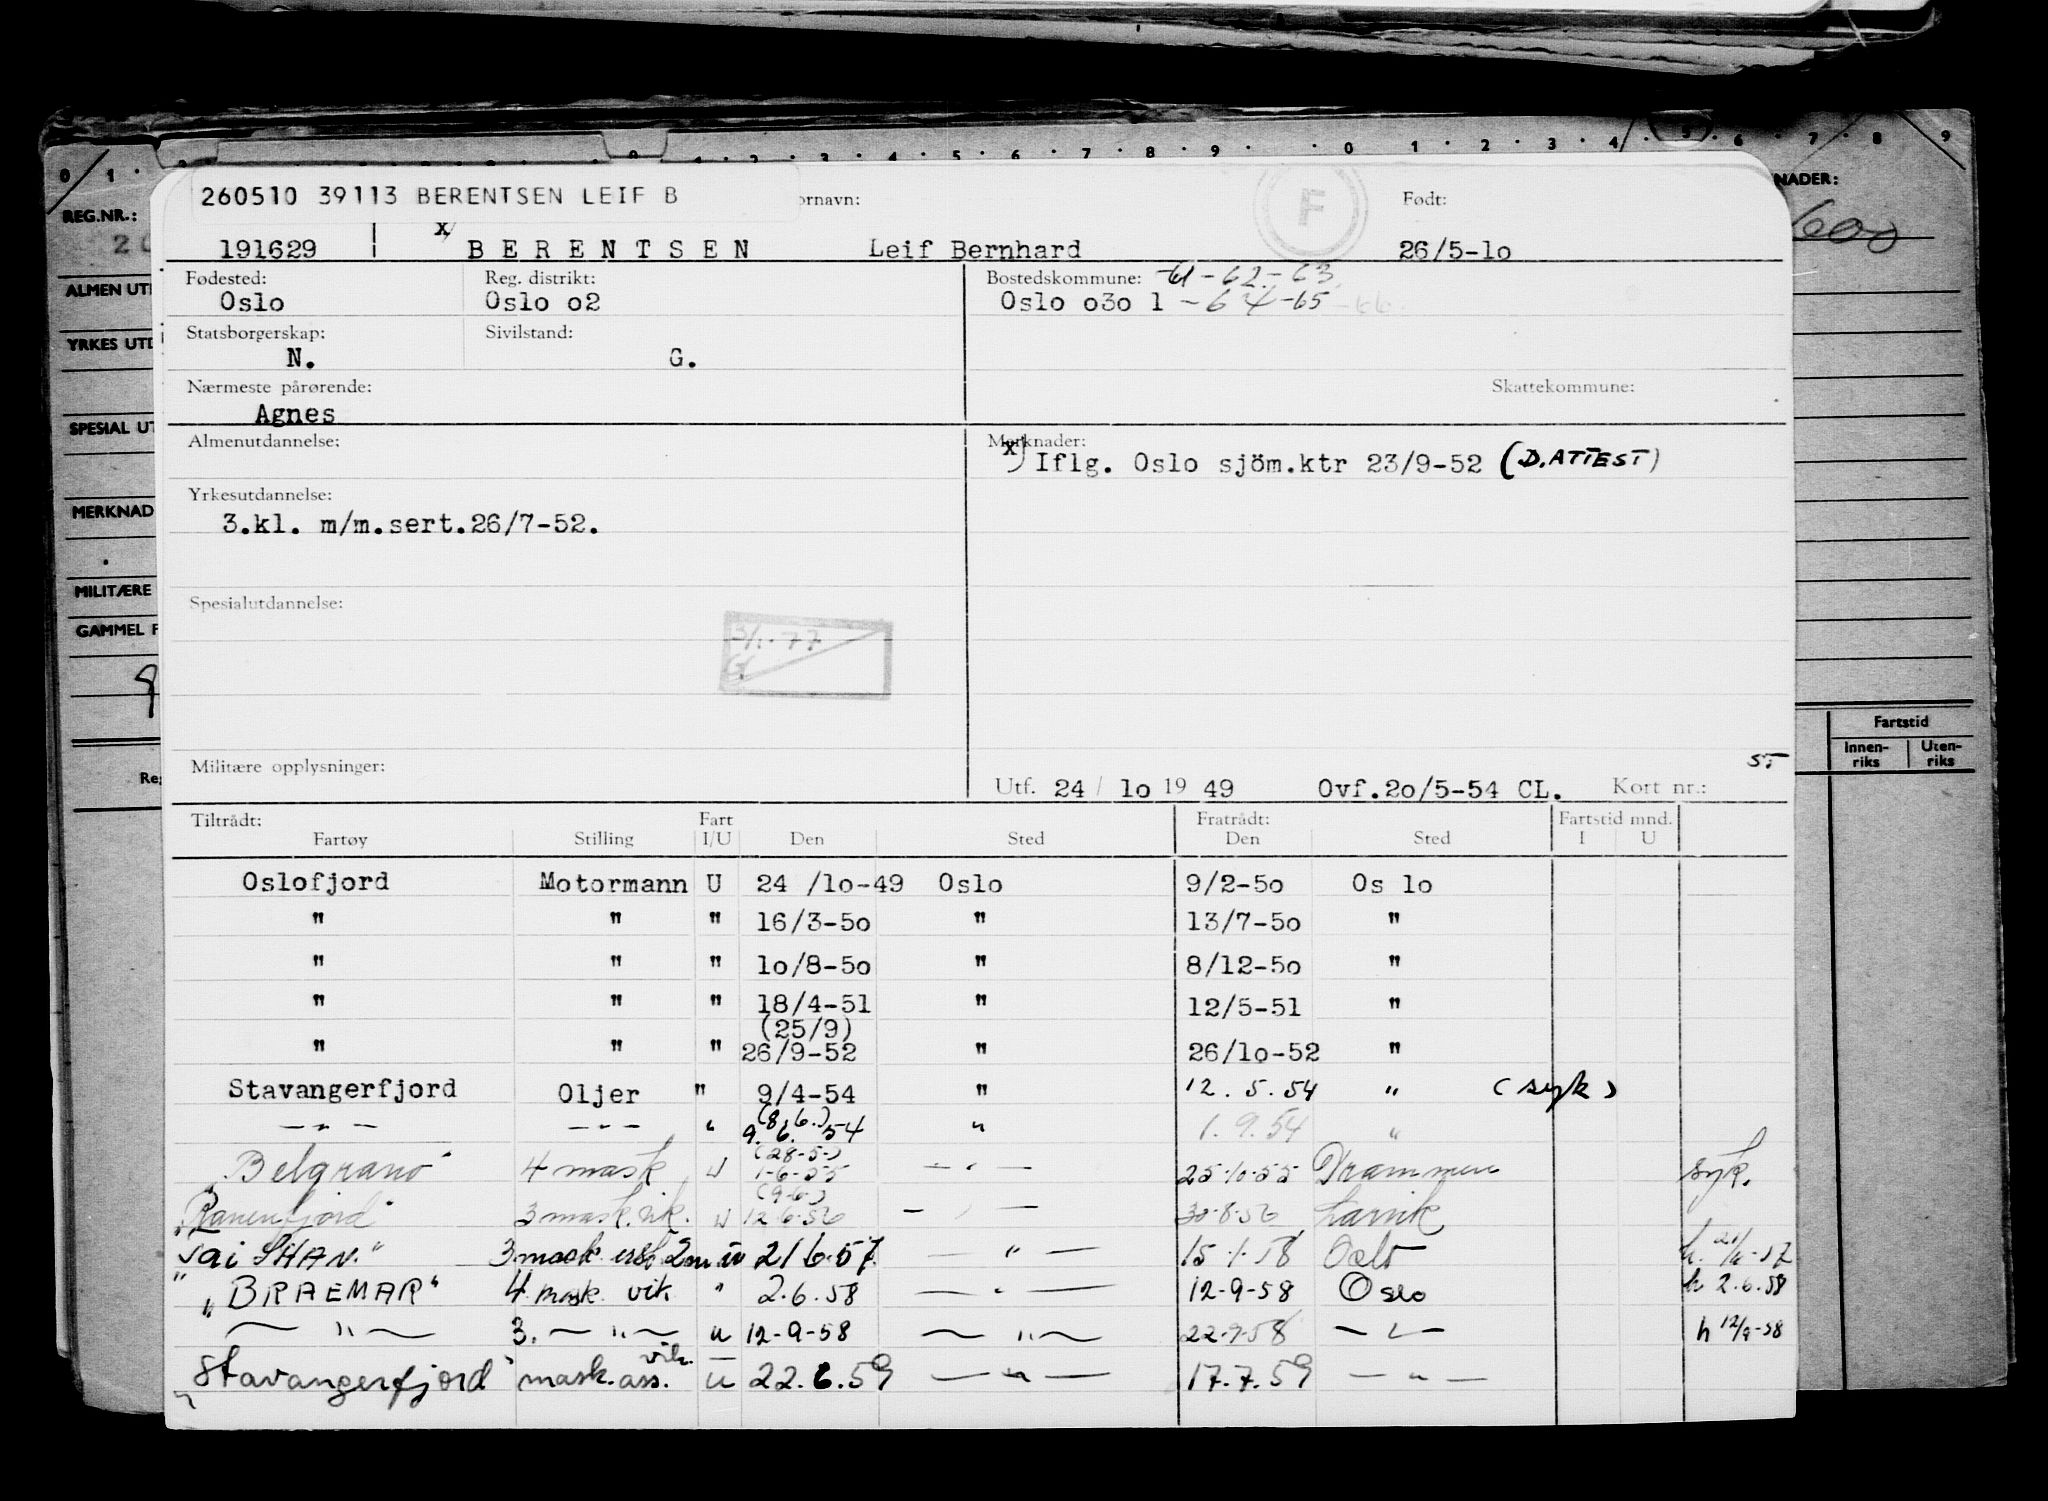 0 1 2 3 4 5 6 7 8 9 0 1 2 3 4 5 6 7 8 9
REG.NR.:
NADER:
600
ALMEN UT
YRKES UTD
SPESIAL UT
MERKNAD
MILITÆRE
GAMMEL F
Re
Fartstid
Innen-riks Uten-riks
260510 39113 BERENTSEN LEIF B
ornavn: F Født:
191629 x/ BERENTSEN Leif Bernhard 26/5-1o
Fødested: Reg. distrikt: Bostedskommune: -61-62-63
Oslo Oslo o2 Oslo o3o 1 -64-65-66.
Statsborgerskap: Sivilstand:
N. G.
Nærmeste pårørende: Skattekommune:
Agnes
Almenutdannelse: Merknader:
x) Iflg. Oslo sjöm.ktr 23/9-52 (D.ATTEST)
Yrkesutdannelse:
3.kl. m/m.sert.26/7-52.
Spesialutdannelse:
3/1-77
Militære opplysninger:
Utf. 24 / 1o 19 49 Ovf.2o/5-54 CL. Kort nr.:
Tiltrådt: Fart Fratrådt: Fartstid mnd.
Fartøy Stilling I/U Den Sted Den Sted I U
Oslofjord Motormann U 24 /1o-49 Oslo 9/2-5o Os lo
" " " 16/3-5o " 13/7-5o "
" " " 1o/8-5o " 8/12-5o "
" " " 18/4-51 " 12/5-51 "
(25/9)
" " " 26/9-52 " 26/1o-52 "
Stavangerfjord Oljer " 9/4-54 " 12.5.54 " (syk)
(8.6.)
— " — — " — " 9.6.54 " 1.9.54 "
(28-5-)
"Belgrano" 4 mask U 1-6-55 — " — 25.10.55 Drammen syk.
(9-6-)
"Ranenfjord" 3 mask.vik. U 12-6-56 — " — 30-8-56 Larvik
"Vai SHAN." 3 mask. 2 21 6.57 — " — 15.1.58 Oslo h. 21/6-57
"BRAEMAR" 4 mask. vik. " 2.6.58 — " — 12-9-58 Oslo h 2.6.58
— " — 3. — " — u 12-9-58 — " — 22.9.58 — " — h 12/9-58
"Stavangerfjord" mask.ass. vik. u 22.6.59 — " — 17.7.59 — " —